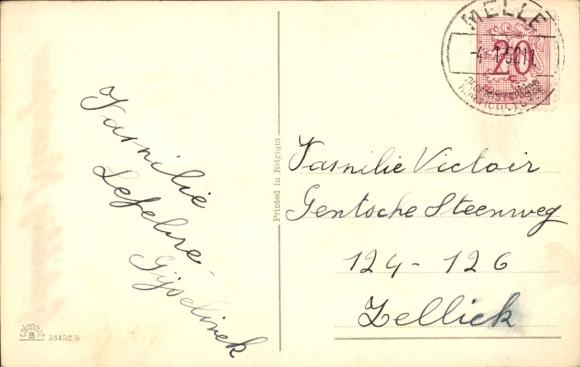 Familie
Lefebre-
Gijselinck
Printed in Belgium
53452/5
MELLE
20
Familie Victoir
Gentsche Steenweg
124-126
Zellick